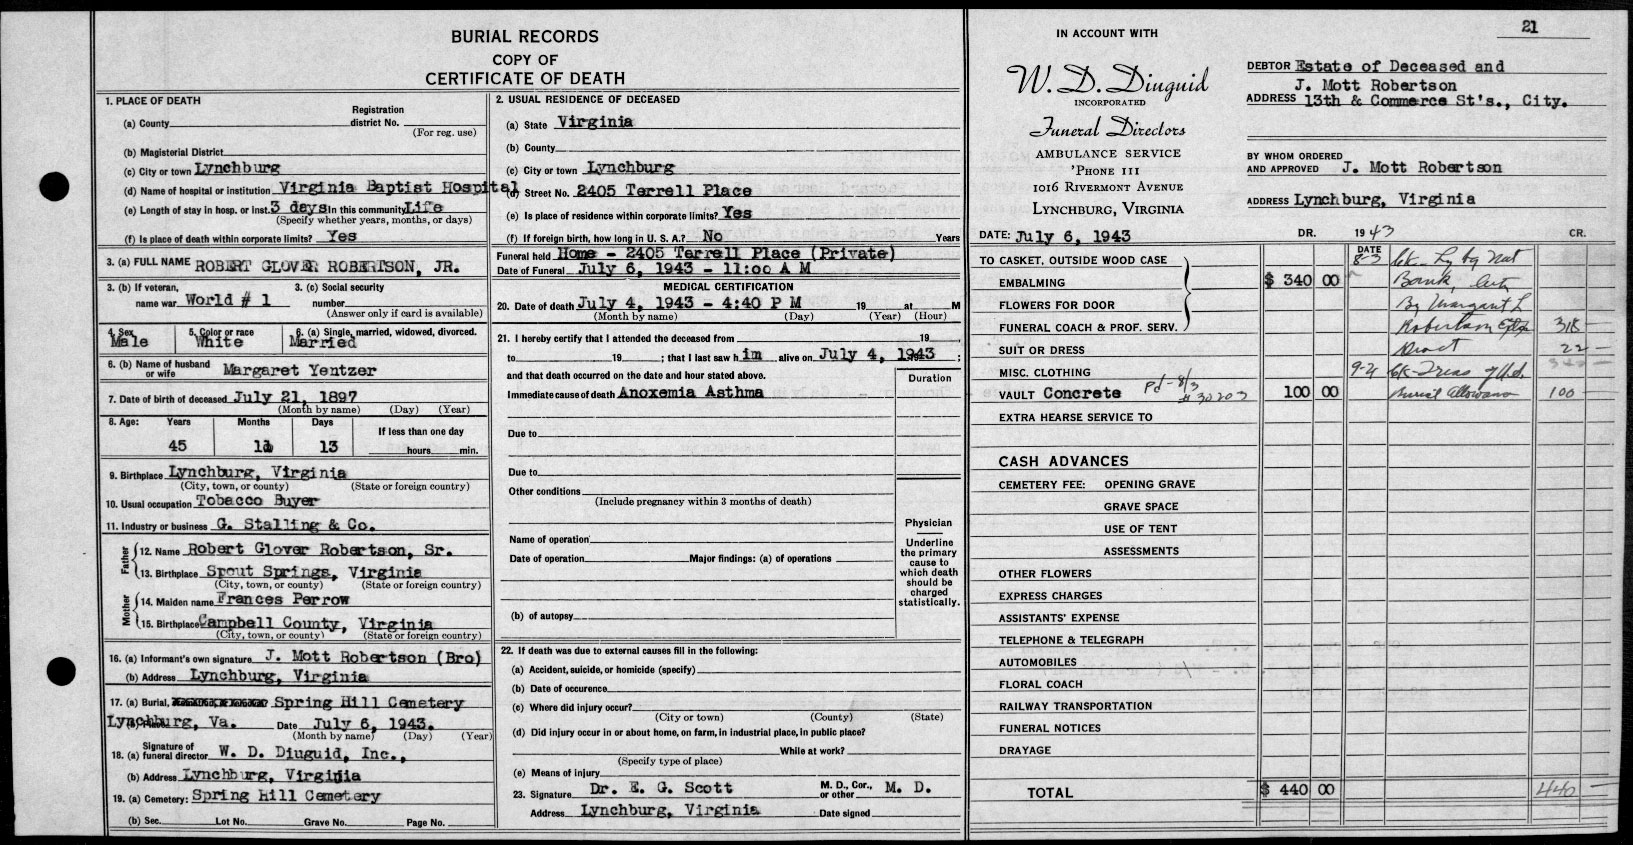 BURIAL RECORDS
COPY OF
CERTIFICATE OF DEATH
1. PLACE OF DEATH
(a) County
Registration district No.
(For reg. use)
(b) Magisterial District
(c) City or town Lynchburg
(d) Name of hospital or institution Virginia Baptist Hospital
(e) Length of stay in hosp. or inst. 3 days In this community Life
(Specify whether years, months, or days)
(f) Is place of death within corporate limits? Yes
3. (a) FULL NAME ROBERT GLOVER ROBERTSON, JR.
3. (b) If veteran, name war World # 1
3. (c) Social security number
(Answer only if card is available)
4. Sex Male
5. Color or race White
6. (a) Single, married, widowed, divorced. Married
6. (b) Name of husband or wife Margaret Yentzer
7. Date of birth of deceased July 21, 1897
(Month by name) (Day) (Year)
8. Age: Years Months Days If less than one day
45 11 13 hours min.
9. Birthplace Lynchburg, Virginia
(City, town, or county) (State or foreign country)
10. Usual occupation Tobacco Buyer
11. Industry or business G. Stalling & Co.
Father
12. Name Robert Glover Robertson, Sr.
13. Birthplace Spout Springs, Virginia
(City, town, or county) (State or foreign country)
Mother
14. Maiden name Frances Perrow
15. Birthplace Campbell County, Virginia
(City, town, or county) (State or foreign country)
16. (a) Informant's own signature J. Mott Robertson (Bro)
(b) Address Lynchburg, Virginia
17. (a) Burial, Spring Hill Cemetery
Lynchburg, Va. Date July 6, 1943.
(Month by name) (Day) (Year)
18. (a) Signature of funeral director W. D. Diuguid, Inc.,
(b) Address Lynchburg, Virginia
19. (a) Cemetery: Spring Hill Cemetery
(b) Sec. Lot No. Grave No. Page No.
2. USUAL RESIDENCE OF DECEASED
(a) State Virginia
(b) County
(c) City or town Lynchburg
(d) Street No. 2405 Terrell Place
(e) Is place of residence within corporate limits? Yes
(f) If foreign birth, how long in U. S. A.? No Years
Funeral held Home - 2405 Terrell Place (Private)
Date of Funeral July 6, 1943 - 11:00 A M
MEDICAL CERTIFICATION
20. Date of death July 4, 1943 - 4:40 P M 19 at M
(Month by name) (Day) (Year) (Hour)
21. I hereby certify that I attended the deceased from 19
to 19 ; that I last saw him alive on July 4, 1943 ;
and that death occurred on the date and hour stated above.
Duration
Immediate cause of death Anoxemia Asthma
Due to
Due to
Other conditions
(Include pregnancy within 3 months of death)
Physician
Underline the primary cause to which death should be charged statistically.
Name of operation
Date of operation Major findings: (a) of operations
(b) of autopsy
22. If death was due to external causes fill in the following:
(a) Accident, suicide, or homicide (specify)
(b) Date of occurence
(c) Where did injury occur?
(City or town) (County) (State)
(d) Did injury occur in or about home, on farm, in industrial place, in public place?
While at work?
(Specify type of place)
(e) Means of injury
23. Signature Dr. E. G. Scott M. D., Cor., or other M. D.
Address Lynchburg, Virginia Date signed
21
IN ACCOUNT WITH
W. D. Diuguid
INCORPORATED
Funeral Directors
AMBULANCE SERVICE
'PHONE 111
1016 RIVERMONT AVENUE
LYNCHBURG, VIRGINIA
DATE: July 6, 1943
DEBTOR Estate of Deceased and
J. Mott Robertson
ADDRESS 13th & Commerce St's., City.
BY WHOM ORDERED AND APPROVED J. Mott Robertson
ADDRESS Lynchburg, Virginia
DR. 1943 CR.
DATE
TO CASKET, OUTSIDE WOOD CASE 8-3 Ck - Ly by Nat
EMBALMING $ 340 00 Bank,
FLOWERS FOR DOOR By Margaret L
FUNERAL COACH & PROF. SERV. Robertson 318 -
SUIT OR DRESS 22 -
MISC. CLOTHING 9-21 Ck - Treas of U.S.
VAULT Concrete Pd - 8/3 # 30203 100 00 Burial Allowance 100 -
EXTRA HEARSE SERVICE TO
CASH ADVANCES
CEMETERY FEE: OPENING GRAVE
GRAVE SPACE
USE OF TENT
ASSESSMENTS
OTHER FLOWERS
EXPRESS CHARGES
ASSISTANTS' EXPENSE
TELEPHONE & TELEGRAPH
AUTOMOBILES
FLORAL COACH
RAILWAY TRANSPORTATION
FUNERAL NOTICES
DRAYAGE
TOTAL $ 440 00 440 -